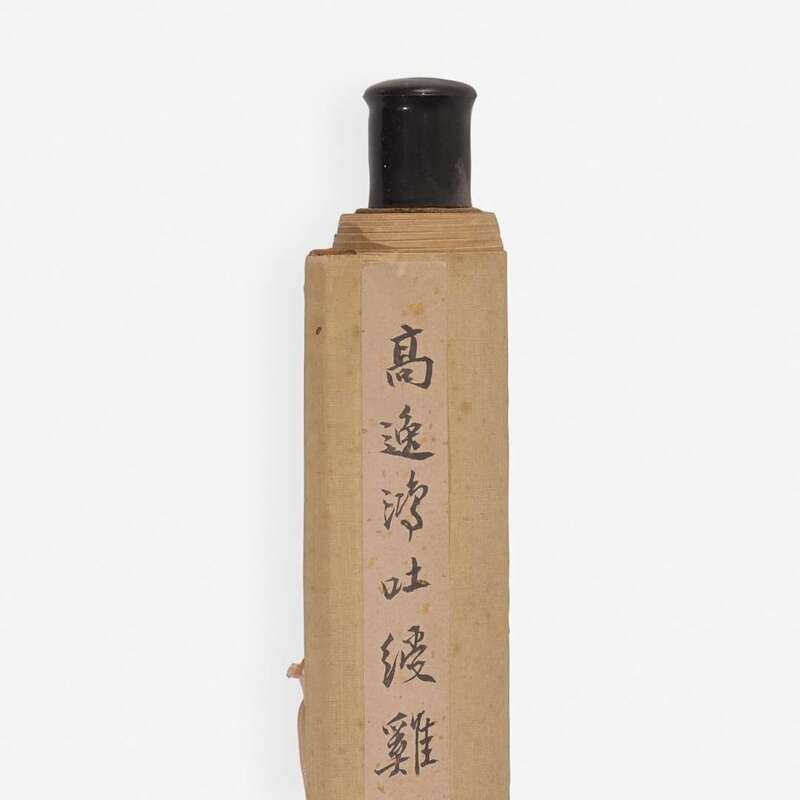 高逸鴻吐綬雞